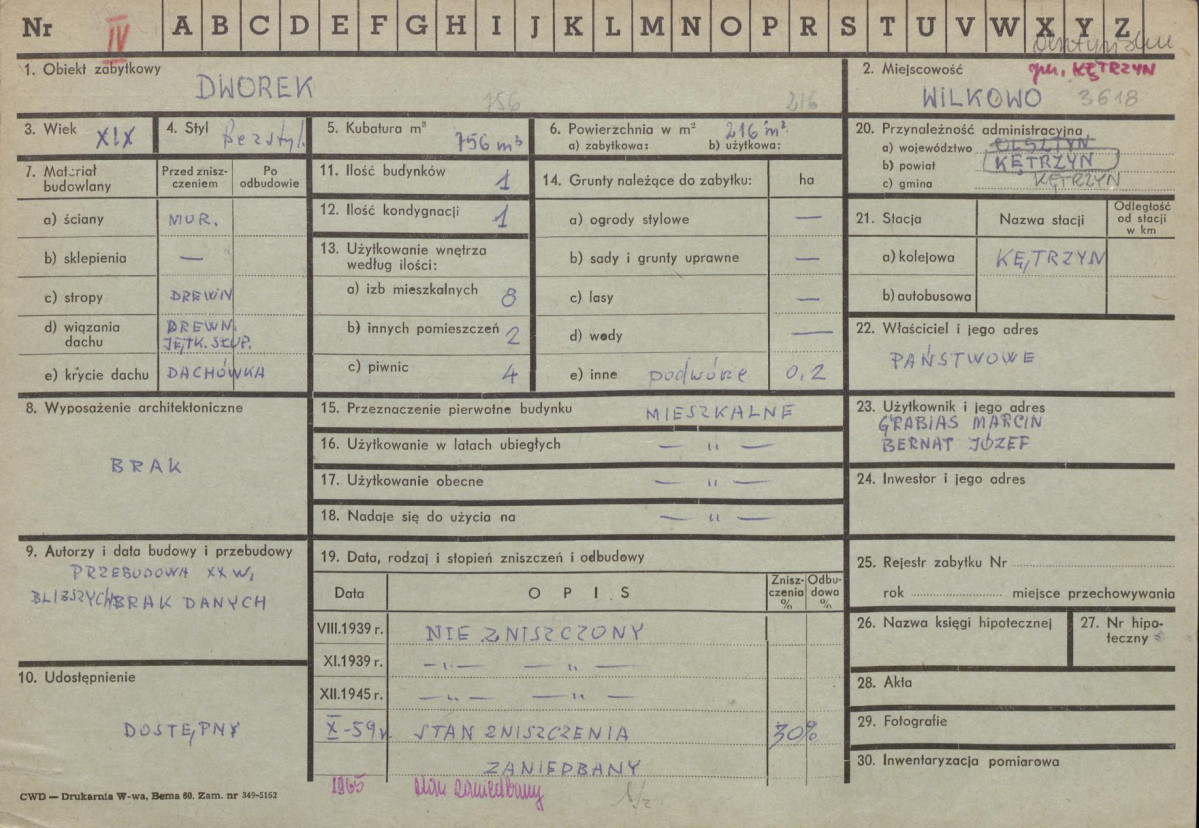 Nr IV A B C D E F G H I J K L M N O P R S T U V W X Y Z
1. Obiekt zabytkowy
DWOREK
756
216
2. Miejscowość
gm. KĘTRZYN
WILKOWO 3618
3. Wiek XIX
4. Styl Bezstyl.
5. Kubatura m³
756 m³
6. Powierzchnia w m² 216 m²
a) zabytkowa: b) użytkowa:
20. Przynależność administracyjna
a) województwo OLSZTYN
b) powiat KĘTRZYN
c) gmina KĘTRZYN
7. Materiał budowlany
Przed znisz-
czeniem
Po
odbudowie
a) ściany MUR.
b) sklepienia —
c) stropy DREWN
d) wiązania
dachu
DREWN.
JĘTK. SŁUP.
e) krycie dachu DACHÓWKA
11. Ilość budynków 1
12. Ilość kondygnacji 1
13. Użytkowanie wnętrza
według ilości:
a) izb mieszkalnych 8
b) innych pomieszczeń 2
c) piwnic 4
14. Grunty należące do zabytku: ha
a) ogrody stylowe —
b) sady i grunty uprawne —
c) lasy —
d) wody —
e) inne podwórze 0,2
21. Stacja
Nazwa stacji
Odległość
od stacji
w km
a) kolejowa KĘTRZYN
b) autobusowa
22. Właściciel i jego adres
PAŃSTWOWE
8. Wyposażenie architektoniczne
BRAK
15. Przeznaczenie pierwotne budynku MIESZKALNE
16. Użytkowanie w latach ubiegłych — " —
17. Użytkowanie obecne — " —
18. Nadaje się do użycia na — " —
23. Użytkownik i jego adres
GRABIAS MARCIN
BERNAT JÓZEF
24. Inwestor i jego adres
9. Autorzy i data budowy i przebudowy
PRZEBUDOWA XX W,
BLIŻSZYCH BRAK DANYCH
19. Data, rodzaj i stopień zniszczeń i odbudowy
Data
O P I S
Znisz-
czenia
%
Odbu-
dowa
%
VIII.1939 r. NIE ZNISZCZONY
XI.1939 r. — " — — " —
XII.1945 r. — " — — " —
X-59 r. STAN ZNISZCZENIA 30%
ZANIEDBANY
1965 stan zaniedbany
25. Rejestr zabytku Nr
rok miejsce przechowywania
26. Nazwa księgi hipotecznej
27. Nr hipo-
teczny
10. Udostępnienie
DOSTĘPNY
28. Akta
29. Fotografie
30. Inwentaryzacja pomiarowa
CWD — Drukarnia W-wa, Bema 60. Zam. nr 349-5162